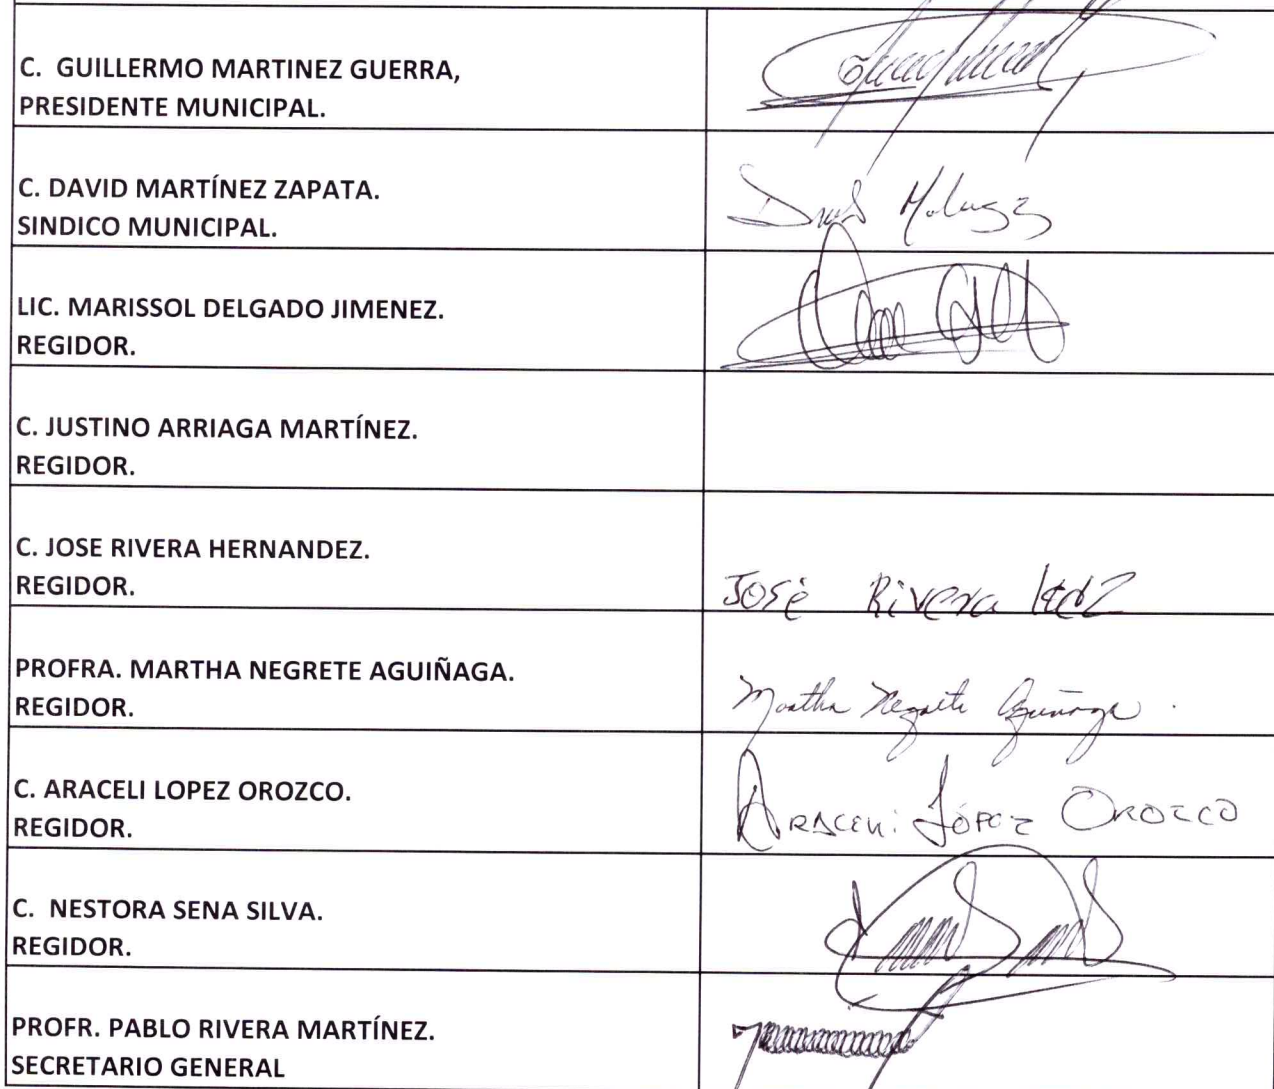 C. GUILLERMO MARTINEZ GUERRA,
PRESIDENTE MUNICIPAL.
C. DAVID MARTÍNEZ ZAPATA.
SINDICO MUNICIPAL.
LIC. MARISSOL DELGADO JIMENEZ.
REGIDOR.
C. JUSTINO ARRIAGA MARTÍNEZ.
REGIDOR.
C. JOSE RIVERA HERNANDEZ.
REGIDOR.
José Rivera Hdz
PROFRA. MARTHA NEGRETE AGUIÑAGA.
REGIDOR.
Martha Negrete Aguiñaga
C. ARACELI LOPEZ OROZCO.
REGIDOR.
ARACELI LÓPEZ OROZCO
C. NESTORA SENA SILVA.
REGIDOR.
PROFR. PABLO RIVERA MARTÍNEZ.
SECRETARIO GENERAL